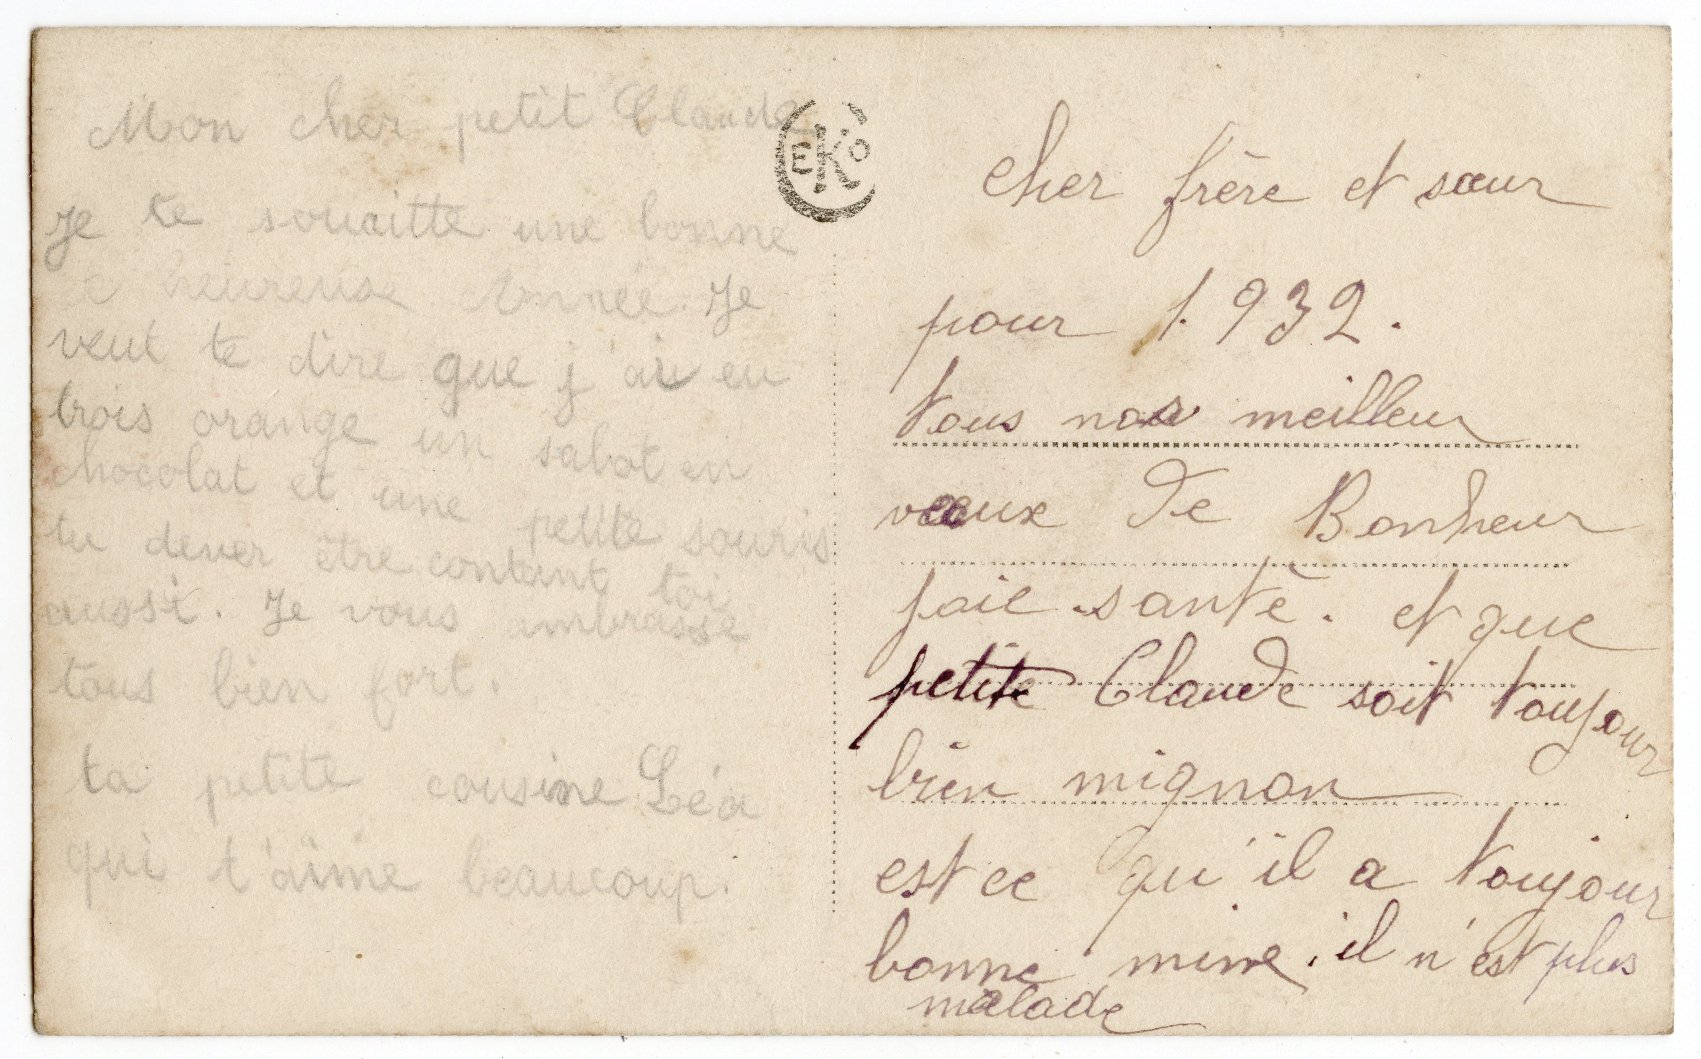 Mon cher petit Claude
Je te souaitte une bonne
e heureuse Année. Je
veut te dire que j'ai eu
trois orange un sabot en
chocolat et une petite souris
tu dever être contant toi
aussi. Je vous ambrasse
tous bien fort.
ta petite cousine Léa
qui t'aime beaucoup.
EKO
cher frère et sœur
pour 1.932.
tous nos meilleur
vœux de Bonheur
joie santé. et que
petite Claude soit toujour
bien mignon
est ce qu'il a toujour
bonne mine. il n'est plus
malade